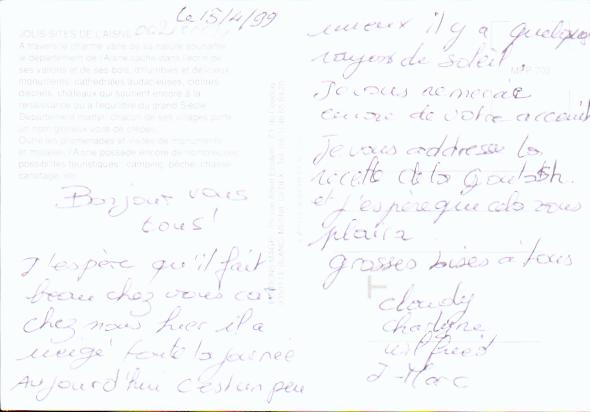 le 15/4/99
JOLIS SITES DE L'AISNE
A travers le charme varié de sa nature souriante
le département de l'Aisne cache dans l'écrin de
ses vallons et de ses bois, d'illustres et délicieux
monuments, cathédrales audacieuses, donjons
déchus, châteaux qui sourient encore à la
renaissance ou à l'équilibre du grand Siècle
Département martyr, chacun de ses villages porte
un nom glorieux voilé de crêpe.
Outre les promenades et visites de monuments
et musées, l'Aisne possède encore de nombreuses
possibilités touristiques : camping, pêche, chasse
canotage, etc.
Bonjour vous
tous !
J'espère qu'il fait
beau chez vous car
chez nous hier il a
neigé toute la journée
Aujourd'hui c'est un peu
mieux il y a quelques
rayons de soleil.
Je vous remercie
encore de votre accueil
Je vous addresse la
recette de la goulash.
et j'espère que cela vous
plaira
grosses bises à tous
cloudy
charlyne
wilfried
J-Marc